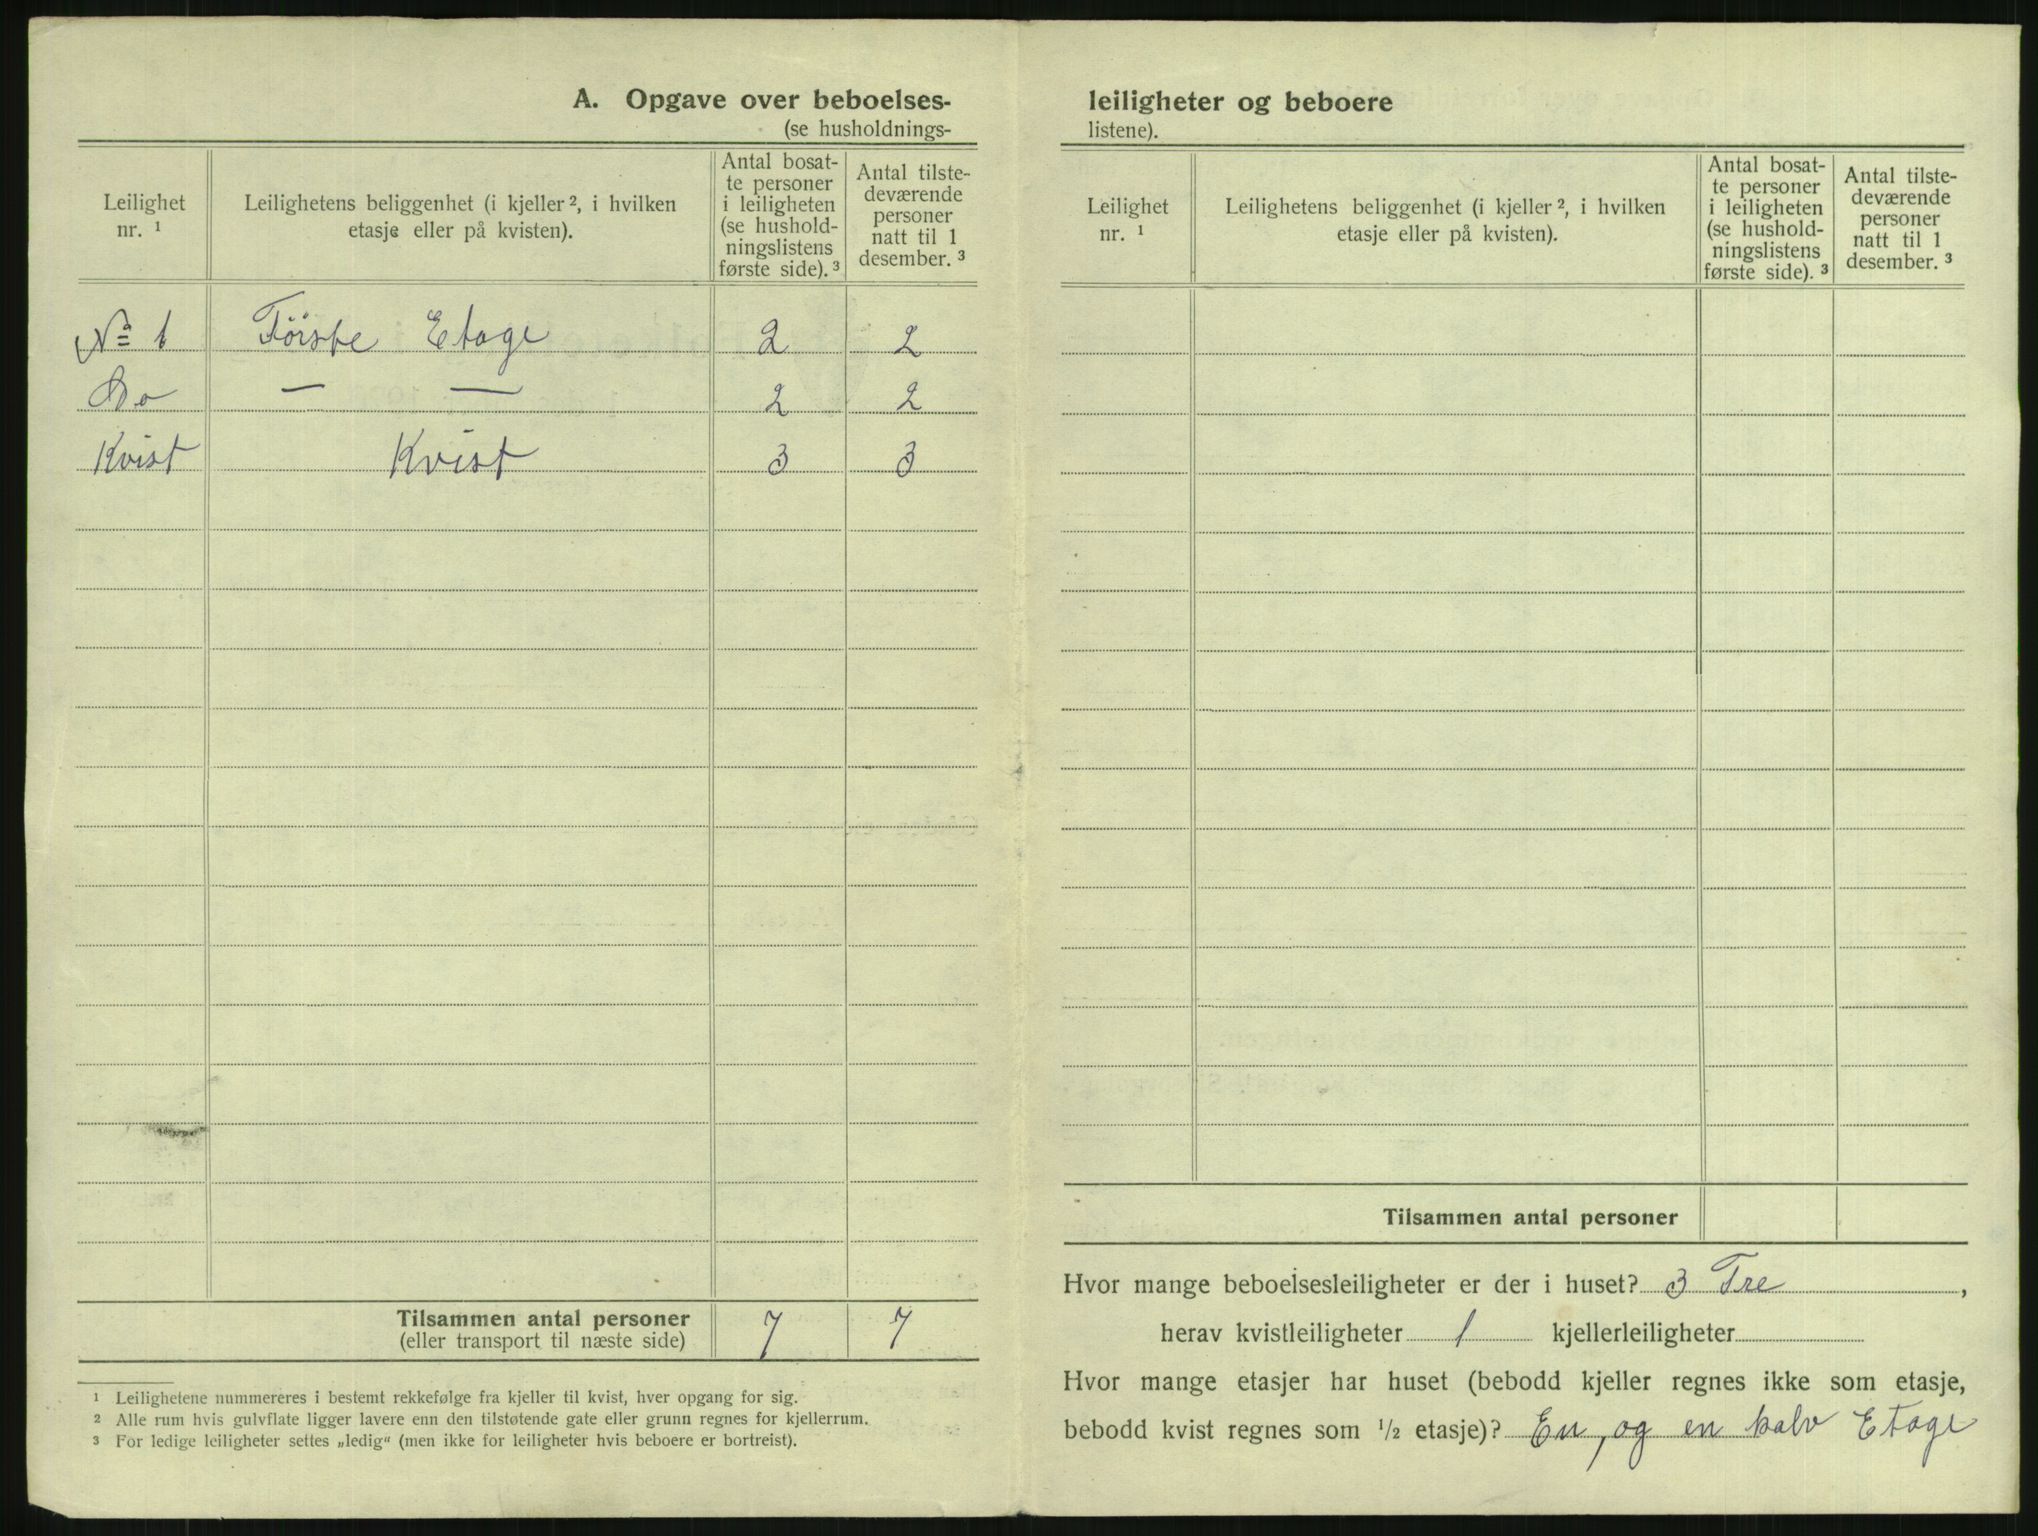 A. Opgave over beboelses-
(se husholdnings-
Leilighet nr. ¹
Leilighetens beliggenhet (i kjeller ², i hvilken etasje eller på kvisten).
Antal bosat-
te personer
i leiligheten
(se hushold-
ningslistens
første side). ³
Antal tilste-
deværende
personer
natt til 1
desember. ³
No 1 Förste Etage 2 2
Do — — 2 2
Kvist Kvist 3 3
Tilsammen antal personer 7 7
(eller transport til næste side)
¹ Leilighetene nummereres i bestemt rekkefølge fra kjeller til kvist, hver opgang for sig.
² Alle rum hvis gulvflate ligger lavere enn den tilstøtende gate eller grunn regnes for kjellerrum.
³ For ledige leiligheter settes „ledig“ (men ikke for leiligheter hvis beboere er bortreist).
leiligheter og beboere
listene).
Leilighet nr. ¹
Leilighetens beliggenhet (i kjeller ², i hvilken etasje eller på kvisten).
Antal bosat-
te personer
i leiligheten
(se hushold-
ningslistens
første side). ³
Antal tilste-
deværende
personer
natt til 1
desember. ³
Tilsammen antal personer
Hvor mange beboelsesleiligheter er der i huset? 3 Tre ,
herav kvistleiligheter 1 kjellerleiligheter
Hvor mange etasjer har huset (bebodd kjeller regnes ikke som etasje,
bebodd kvist regnes som ½ etasje)? En, og en halv Etage